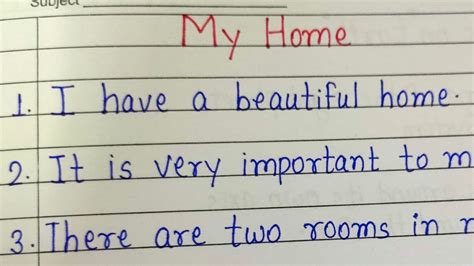 Subject
My Home
1. I have a beautiful home.
2. It is very important to m
3. There are two rooms in